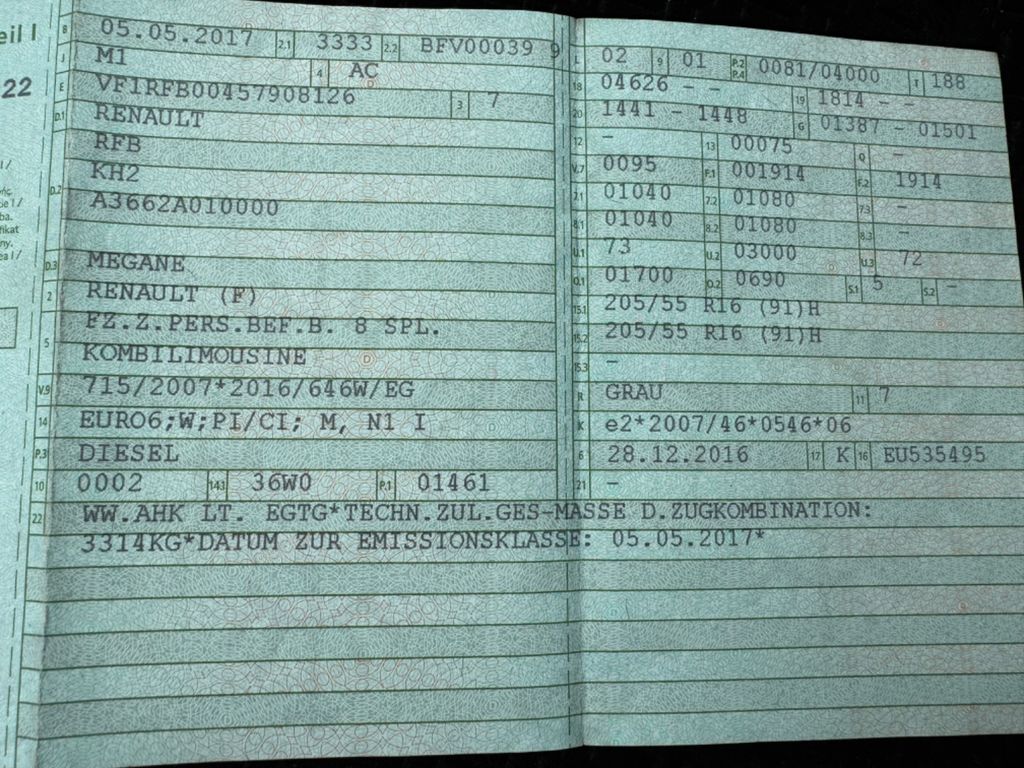 eil I
22
B 05.05.2017 2.1 3333 2.2 BFV00039 9
J M1 4 AC
E VF1RFB00457908126 3 7
D.1 RENAULT
RFB
D.2 KH2
A3662A010000
D.3 MEGANE
2 RENAULT (F)
FZ.Z.PERS.BEF.B. 8 SPL.
5 KOMBILIMOUSINE
V.9 715/2007*2016/646W/EG
14 EURO6;W;PI/CI; M, N1 I
P.3 DIESEL
10 0002 14.1 36W0 P.1 01461
L 02 9 01 P.2 P.4 0081/04000 T 188
18 04626 - - 19 1814 - -
20 1441 - 1448 G 01387 - 01501
12 - 13 00075 Q -
V.7 0095 F.1 001914 F.2 1914
7.1 01040 7.2 01080 7.3 -
8.1 01040 8.2 01080 8.3 -
U.1 73 U.2 03000 U.3 72
O.1 01700 O.2 0690 S.1 5 S.2 -
15.1 205/55 R16 (91)H
15.2 205/55 R16 (91)H
15.3 -
R GRAU 11 7
K e2*2007/46*0546*06
6 28.12.2016 17 K 16 EU535495
21 -
22 WW.AHK LT. EGTG*TECHN.ZUL.GES-MASSE D.ZUGKOMBINATION:
3314KG*DATUM ZUR EMISSIONSKLASSE: 05.05.2017*